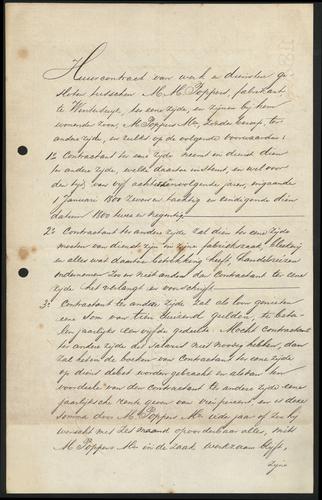 Huurcontract van werk en diensten ge-
sloten tusschen M. M. Poppers, fabrikant
te Winterswijk, ter eene zijde, en zijnen bij hem
wonenden zoon, M. Poppers Mzn, zonder beroep, ter
andere zijde, en zulks op de volgende voorwaarden:
1o Contractant ter eene zijde neemt in dienst dien
ter andere zijde, welke daarin instemt, en wel voor
den tijd van vijf achtereenvolgende jaren, ingaande
1 Januari 1800 zeven en tachtig en eindigende dien
datum 1800 twee en negentig
2o Contractant ter andere zijde zal dien ter eene zijde
moeten van dienst zijn in zijne fabriekzaak,
en alles wat daarop betrekking heeft, handelsreizen
ondernemen zoo en niet anders dan Contractant ter eene
zijde het verlangt en voorschrijft
3o Contractant ter andere zijde zal als loon genieten
eene som van tien duizend gulden, te beta-
len jaarlijks een vijfde gedeelte. Mocht contractant
ter andere zijde het salaris niet noodig hebben, dan
zal hetzelve ten boeken van Contractant ter eene zijde
op diens debet worden gebracht en alsdan ten
voordeele van den contractant ter andere zijde eene
jaarlijksche rente geven van vijf percent en is deze
somma door M. Poppers Mzn ieder jaar of zoo hij
verzuimt met zes maand opvorderbaar alles, mits
M Poppers Mzn in de zaak werkzaam blijft,
zijne